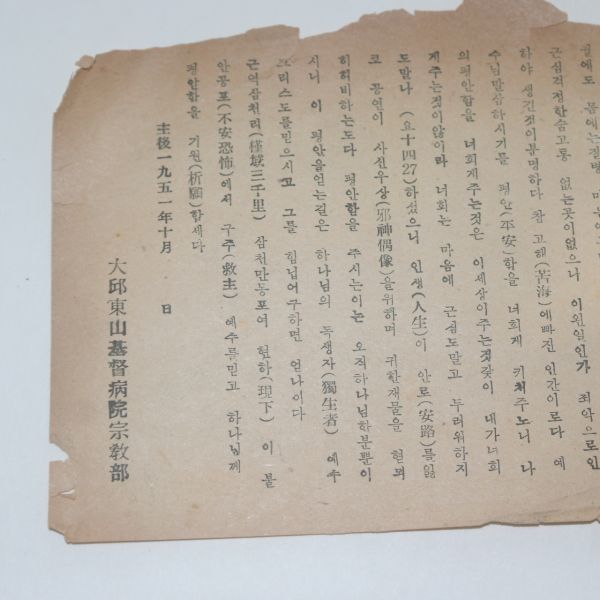 집에도 몸에는질병 마음에는
근심걱정한숨고통 없는곳이없으니 이원일인가 죄악으로인
하야 생긴것이분명하다 참 고해(苦海)에빠진 인간이로다 예
수님말삼하시기를 평안(平安)함을 너희게 키처주노니 나
의평안함을 너희게주는것은 이세상이주는것갗이 내가너희
게주는것이않이라 너희는 마음에 근심도말고 두려워하지
도말나 (요十四27)하셨으니 인생(人生)이 안로(安路)를잃
코 공연이 사신우상(邪神偶像)을위하며 귀한재물을 헌뫼
히허비하는도다 평안함을 주시는이는 오직하나님한분뿐이
시니 이 평안을얻는길은 하나님의 독생자(獨生者) 예수
그리스도를믿으시고 그를 힘닙어구하면 얻나이다
근역삼천리(槿域三千里) 삼천만동포여 현하(現下) 이 불
안공포(不安恐怖)에서 구주(救主) 예수를믿고 하나님께
평안함을 기원(祈願)합세다
主後一九五一年十月 日
大邱東山基督病院宗敎部